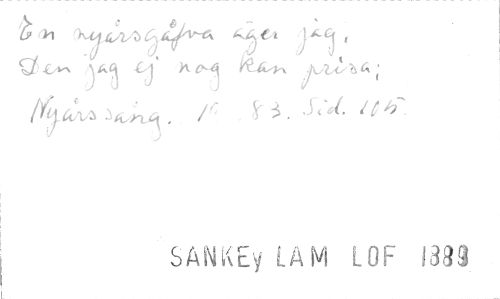 En nyårsgåfva äger jag,
Den jag ej nog kan prisa;
Nyårssång. 83. Sid. 105.
SANKEy LAM LOF 1889